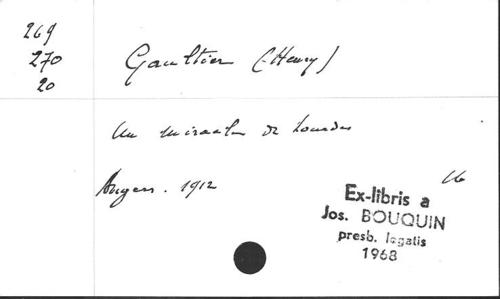 269
270
20
Gaultier (Henry)
Un miracle de Lourdes
Angers. 1912
Ex-libris a
Jos. BOUQUIN
presb. legatis
1968